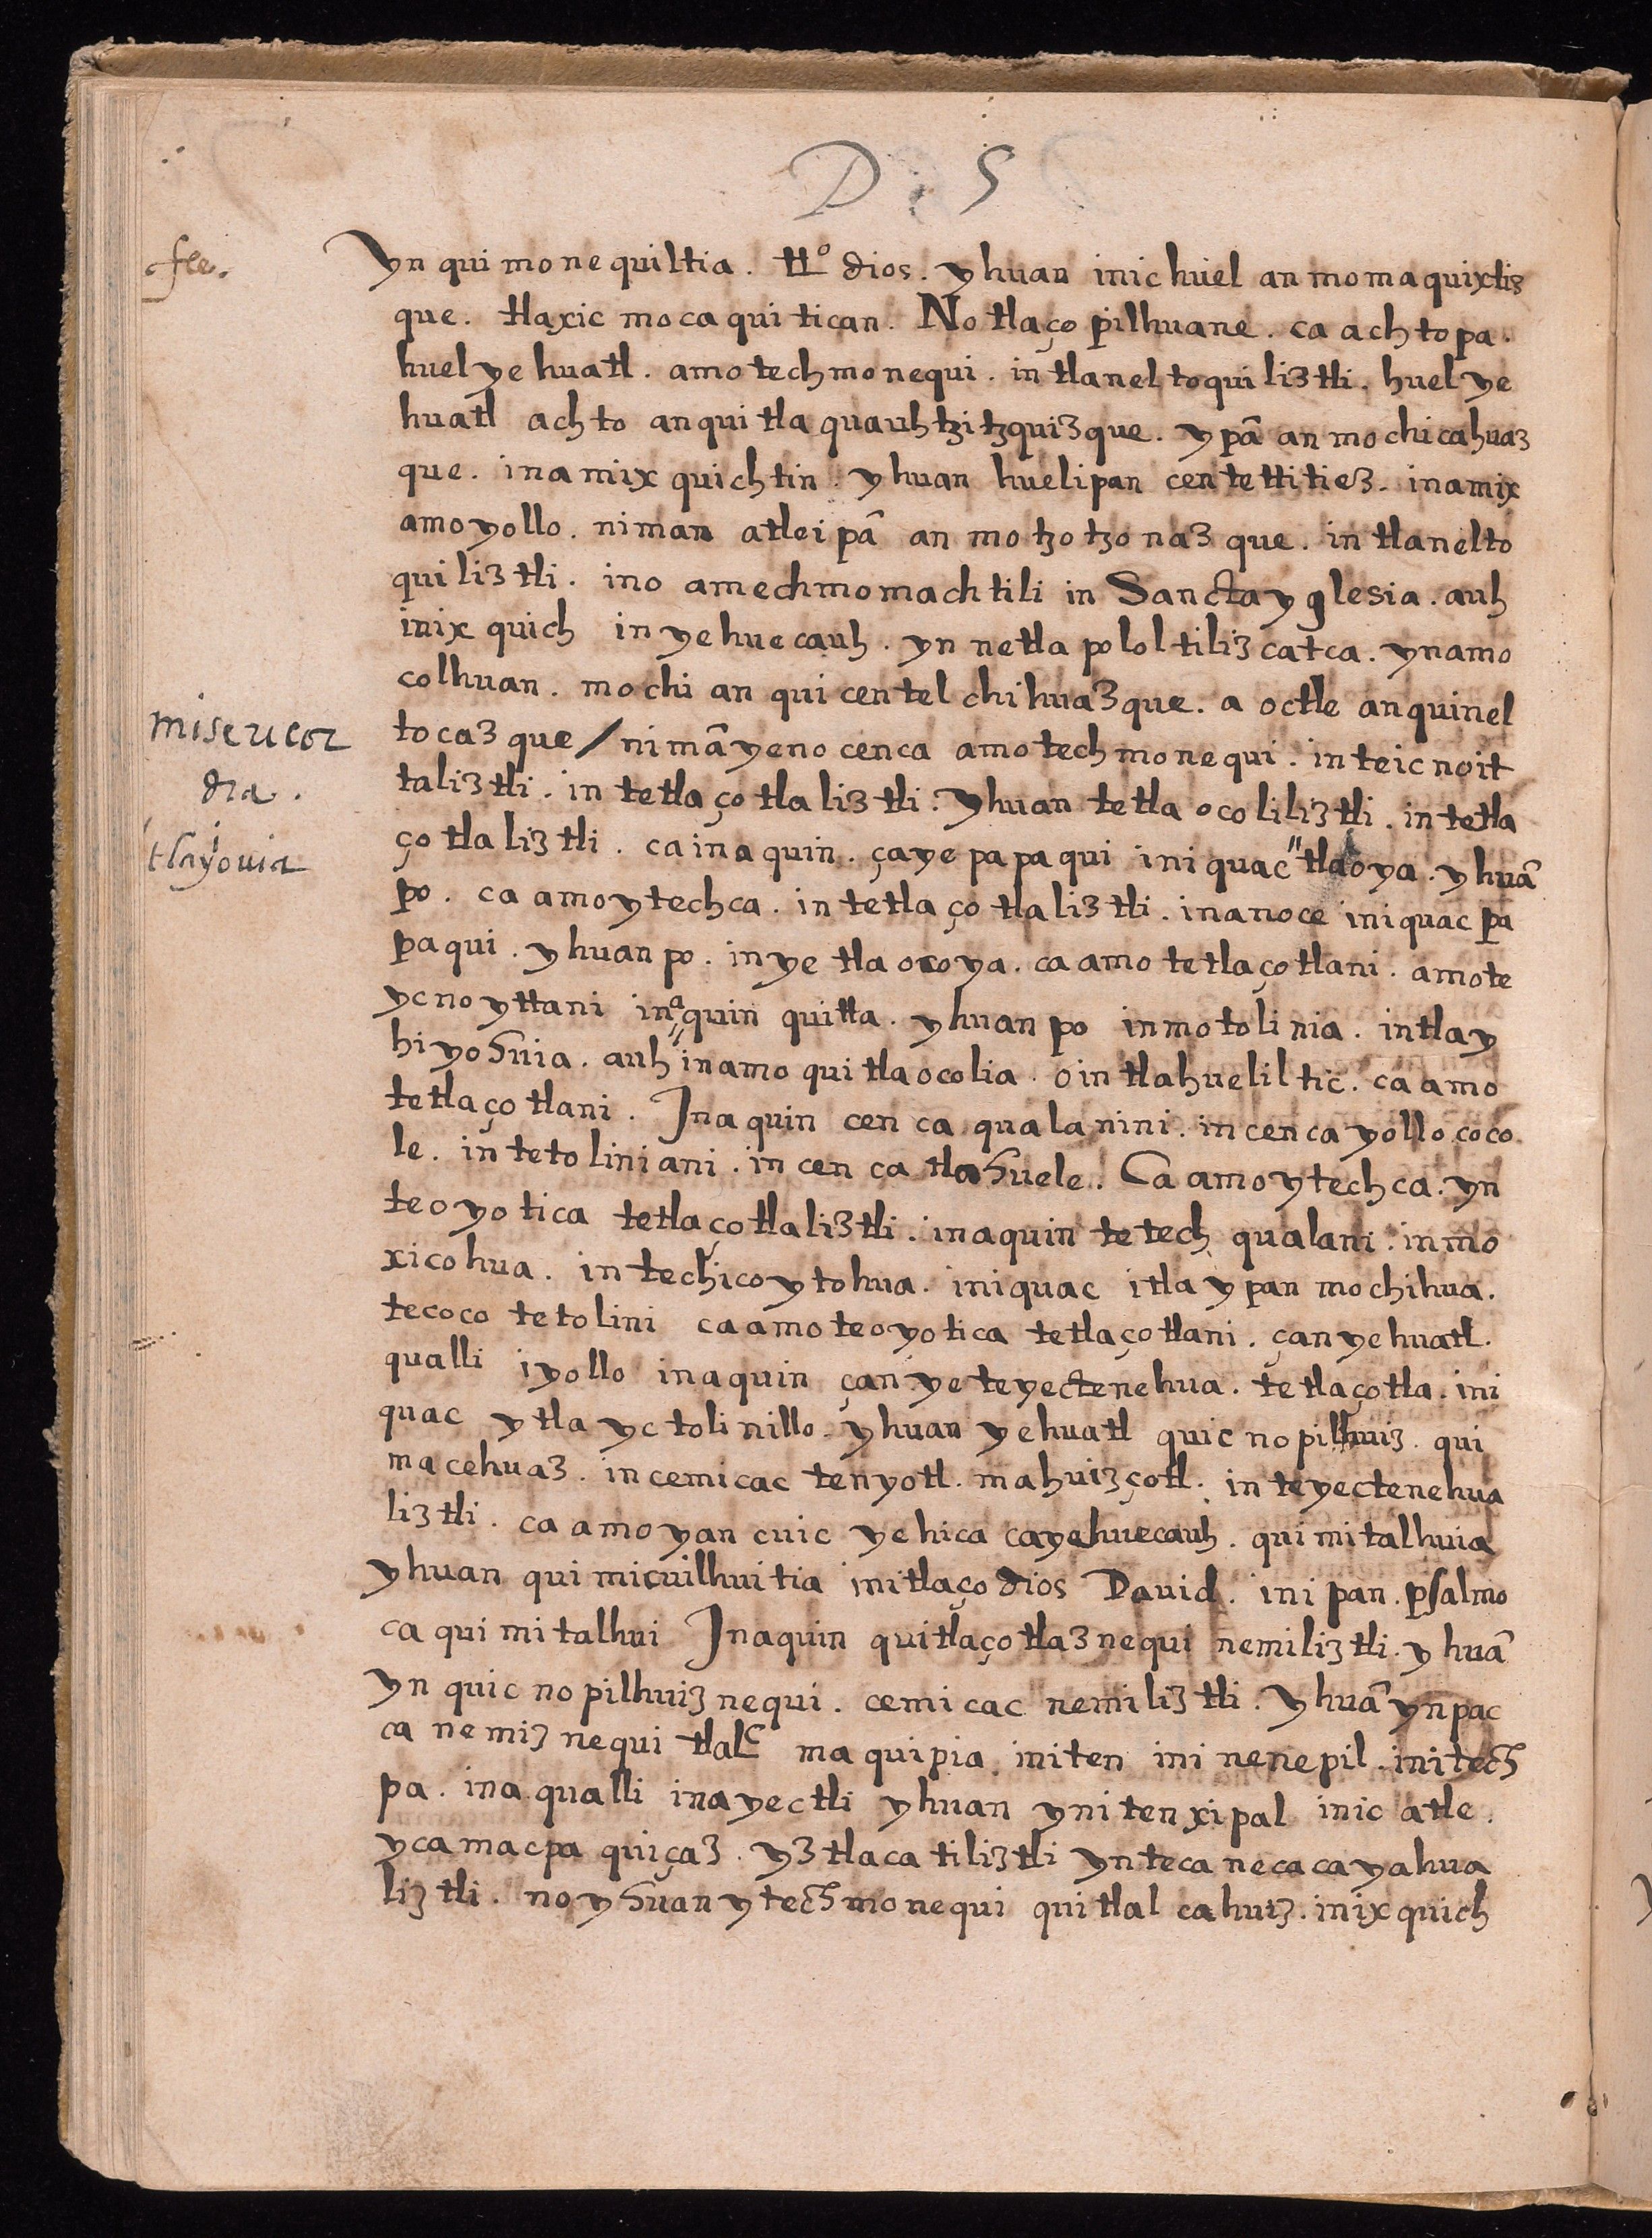 D. S
fee.
yn qui mo ne quiltia. ttº dios. yhuan inic huel an momaquixtiz
que. tlaxic mo ca qui tican. No tlaço pilhuane. ca ach to pa.
huel ye huatl. amo tech monequi. in tlanel toqui liztli. huel ye
huatl ach to an qui tla quauhtzitzquizque. y pā an mo chicahuaz
que. in a mix quich tin. yhuan huel ipan centettitiez. in amix
amo yollo. niman atlei pā an mo tzo tzo naz que. in tlanelto
qui liztli. in o amechmomachtili in Sancta yglesia. auh
inix quich in ye hue cauh. yn netla polol tiliz catca. yn amo
colhuan. mochi an qui centel chi huazque. a octle anquinel
misericor
dia.
tocaz que / nimā yeno cenca amo tech mo ne qui. in teic noit
taliztli. in tetla ço tla liztli. yhuan tetla o co liliztli. in tetla
tlayouia
ço tla liztli. ca in a quin. ça ye pa pa qui ini quac" tlaoya. y huā
po. ca amo ytech ca. in tetla ço tla liztli. in anoce ini quac pa
pa qui. yhuan po. in ye tla oco ya. ca amo te tlaçotlani. amo te
yc no yttani in aquin quitta. yhuan po in motoli nia. in tlay
hi yohuia. auh in amo qui tlaocolia. o in tlahueliltic. ca amo
tetlaço tlani. In a quin cen ca qualanini. in cen ca yollo coco
le. in teto lini ani. in cen ca tlahuele. Ca amo ytech ca. yn
te o yo tica tetlaçotlaliztli. in aquin te tech qualani. in mo
xico hua. in techico ytohua. ini quac itla y pan mo chihua.
tecoco te tolini ca amo teoyotica tetlaçotlani. çan yehuatl.
qualli iyollo in aquin çan ye te yectenehua. te tlaçotla. ini
quac ytla yc toli nillo. yhuan yehuatl quic no pilhuiz. qui
ma cehuaz. in cemi cac tenyotl. mahuizçotl. in teyectenehua
liztli. ca amo yan cuic ye hica ca ye huecauh. qui mi talhuia
yhuan qui micuilhui tia in itlaço dios David. ini pan. psalmo
ca qui mi talhui In aquin qui tlaço tlaz nequi nemiliztli. y huā
yn quic no pilhuiz nequi. cemi cac nemi liztli. y huā yn pac
ca ne miz nequi tlalᶜ ma qui pia. initen ini nenepil. initech
pa. in a qualli in a yectli yhuan yni tenxipal inic atle.
y ca macpa quiçaz. yztlaca tiliztli yn teca necacayahua
liztli. no yhuan ytech monequi qui tlal cahuiz. inix quich